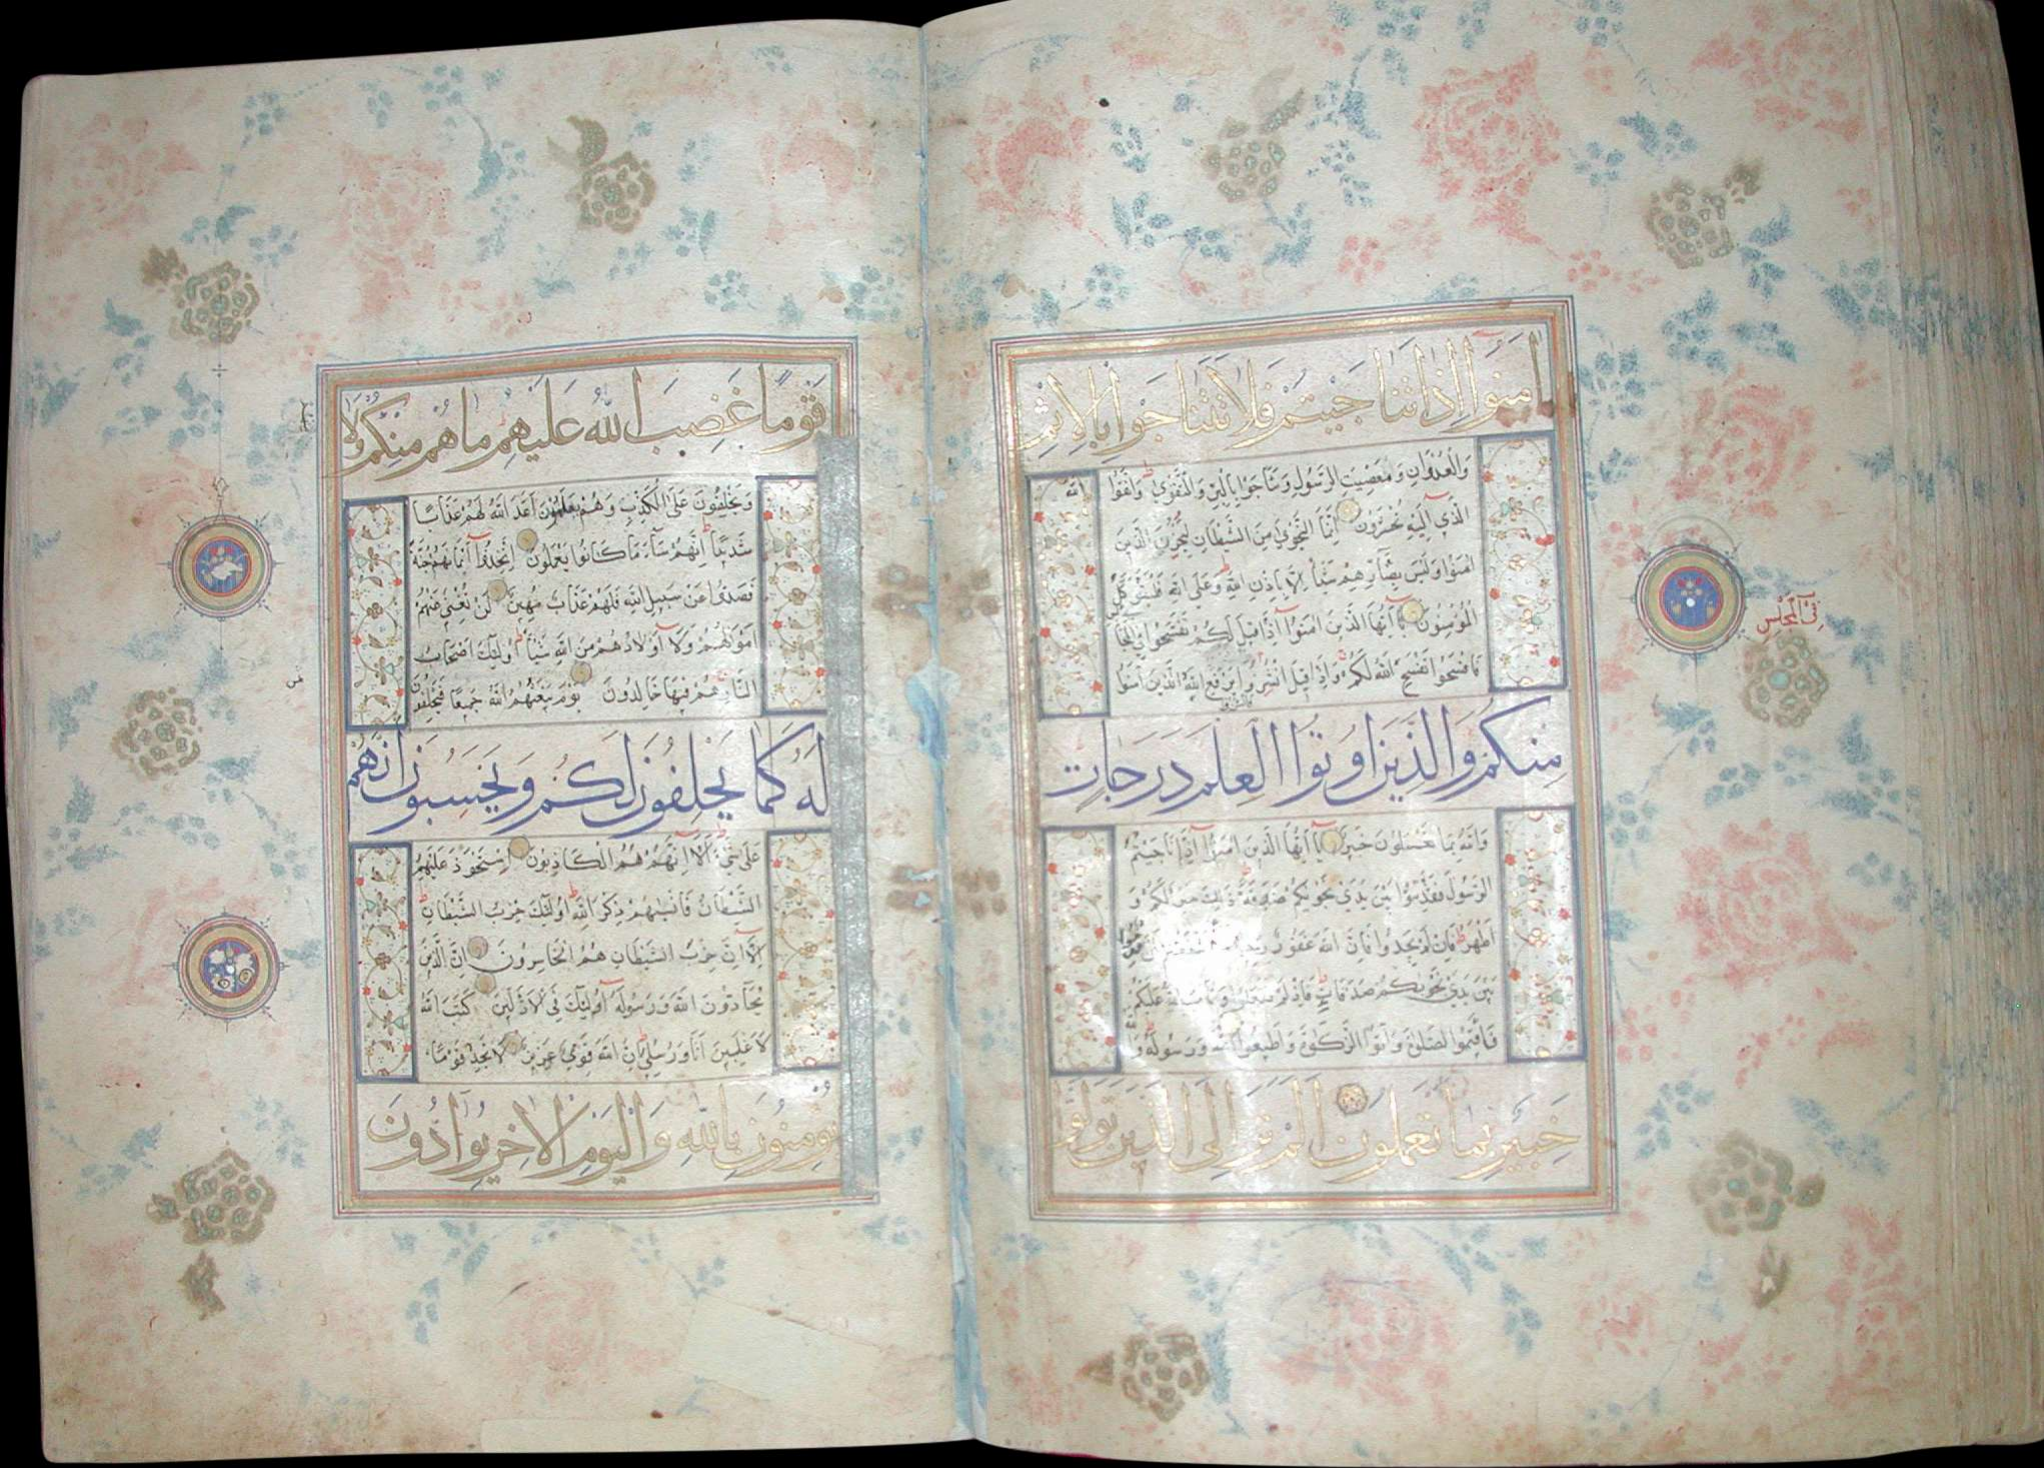 اٰمَنُوا اِذَا تَنَاجَيْتُمْ فَلَا تَتَنَاجَوْا بِالْاِثْمِ
وَالْعُدْوَانِ وَمَعْصِيَتِ الرَّسُولِ وَتَنَاجَوْا بِالْبِرِّ وَالتَّقْوٰى وَاتَّقُوا اللّٰهَ
الَّذِي اِلَيْهِ تُحْشَرُونَ اِنَّمَا النَّجْوٰى مِنَ الشَّيْطَانِ لِيَحْزُنَ الَّذِينَ
اٰمَنُوا وَلَيْسَ بِضَارِّهِمْ شَيْئًا اِلَّا بِاِذْنِ اللّٰهِ وَعَلَى اللّٰهِ فَلْيَتَوَكَّلِ
الْمُؤْمِنُونَ يَا اَيُّهَا الَّذِينَ اٰمَنُوا اِذَا قِيلَ لَكُمْ تَفَسَّحُوا فِي الْمَجَالِسِ
فَافْسَحُوا يَفْسَحِ اللّٰهُ لَكُمْ وَاِذَا قِيلَ انْشُزُوا يَرْفَعِ اللّٰهُ الَّذِينَ اٰمَنُوا
فَانْشُزُوا
مِنْكُمْ وَالَّذِينَ اُوتُوا الْعِلْمَ دَرَجَاتٍ
وَاللّٰهُ بِمَا تَعْمَلُونَ خَبِيرٌ يَا اَيُّهَا الَّذِينَ اٰمَنُوا اِذَا نَاجَيْتُمُ
الرَّسُولَ فَقَدِّمُوا بَيْنَ يَدَيْ نَجْوٰيكُمْ صَدَقَةً ذٰلِكَ خَيْرٌ لَكُمْ وَ
اَطْهَرُ فَاِنْ لَمْ تَجِدُوا فَاِنَّ اللّٰهَ غَفُورٌ رَحِيمٌ ءَاَشْفَقْتُمْ اَنْ تُقَدِّمُوا
بَيْنَ يَدَيْ نَجْوٰيكُمْ صَدَقَاتٍ فَاِذْ لَمْ تَفْعَلُوا وَتَابَ اللّٰهُ عَلَيْكُمْ
فَاَقِيمُوا الصَّلٰوةَ وَاٰتُوا الزَّكٰوةَ وَاَطِيعُوا اللّٰهَ وَرَسُولَهُ وَاللّٰهُ
خَبِيرٌ بِمَا تَعْمَلُونَ اَلَمْ تَرَ اِلَى الَّذِينَ تَوَلَّوْا
فِي الْمَجْلِسِ
قَوْمًا غَضِبَ اللّٰهُ عَلَيْهِمْ مَا هُمْ مِنْكُمْ وَلَا
مِنْهُمْ
وَيَحْلِفُونَ عَلَى الْكَذِبِ وَهُمْ يَعْلَمُونَ اَعَدَّ اللّٰهُ لَهُمْ عَذَابًا
شَدِيدًا اِنَّهُمْ سَاءَ مَا كَانُوا يَعْمَلُونَ اِتَّخَذُوا اَيْمَانَهُمْ جُنَّةً
فَصَدُّوا عَنْ سَبِيلِ اللّٰهِ فَلَهُمْ عَذَابٌ مُهِينٌ لَنْ تُغْنِيَ عَنْهُمْ
اَمْوَالُهُمْ وَلَا اَوْلَادُهُمْ مِنَ اللّٰهِ شَيْئًا اُولٰئِكَ اَصْحَابُ
النَّارِ هُمْ فِيهَا خَالِدُونَ يَوْمَ يَبْعَثُهُمُ اللّٰهُ جَمِيعًا فَيَحْلِفُونَ
لَهُ كَمَا يَحْلِفُونَ لَكُمْ وَيَحْسَبُونَ اَنَّهُمْ
عَلٰى شَيْءٍ اَلَا اِنَّهُمْ هُمُ الْكَاذِبُونَ اِسْتَحْوَذَ عَلَيْهِمُ
الشَّيْطَانُ فَاَنْسٰيهُمْ ذِكْرَ اللّٰهِ اُولٰئِكَ حِزْبُ الشَّيْطَانِ
اَلَا اِنَّ حِزْبَ الشَّيْطَانِ هُمُ الْخَاسِرُونَ اِنَّ الَّذِينَ
يُحَادُّونَ اللّٰهَ وَرَسُولَهُ اُولٰئِكَ فِي الْاَذَلِّينَ كَتَبَ اللّٰهُ
لَاَغْلِبَنَّ اَنَا وَرُسُلِي اِنَّ اللّٰهَ قَوِيٌّ عَزِيزٌ لَا تَجِدُ قَوْمًا
يُؤْمِنُونَ بِاللّٰهِ وَالْيَوْمِ الْاٰخِرِ يُوَادُّونَ